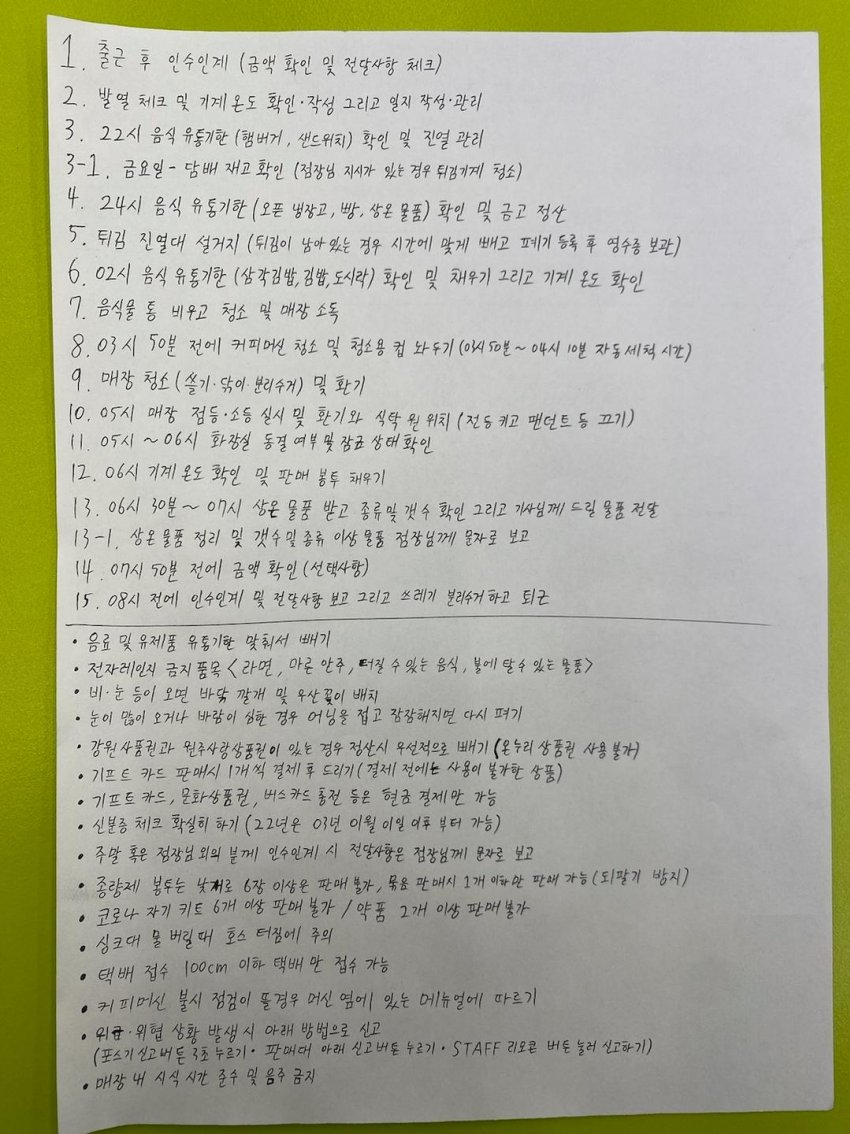 1. 출근 후 인수인계 (금액 확인 및 전달사항 체크)
2. 발열 체크 및 기계 온도 확인·작성 그리고 일지 작성·관리
3. 22시 음식 유통기한 (햄버거, 샌드위치) 확인 및 진열 관리
3-1. 금요일 - 담배 재고 확인 (점장님 지시가 있는 경우 튀김기계 청소)
4. 24시 음식 유통기한 (오픈 냉장고, 빵, 상온 물품) 확인 및 금고 정산
5. 튀김 진열대 설거지 (튀김이 남아있는 경우 시간에 맞게 빼고 폐기 등록 후 영수증 보관)
6. 02시 음식 유통기한 (삼각김밥, 김밥, 도시락) 확인 및 채우기 그리고 기계 온도 확인
7. 음식물 통 비우고 청소 및 매장 소독
8. 03시 50분 전에 커피머신 청소 및 청소용 컵 놔두기 (03시 50분 ~ 04시 10분 자동 세척 시간)
9. 매장 청소 (쓸기·닦이·분리수거) 및 환기
10. 05시 매장 점등·소등 실시 및 환기와 식탁 원위치 (전등 키고 팬던트 등 끄기)
11. 05시 ~ 06시 화장실 동결 여부 및 잠금 상태 확인
12. 06시 기계 온도 확인 및 판매 봉투 채우기
13. 06시 30분 ~ 07시 상온 물품 받고 종류 및 갯수 확인 그리고 기사님께 드릴 물품 전달
13-1. 상온 물품 정리 및 갯수 및 종류 이상 물품 점장님께 문자로 보고
14. 07시 50분 전에 금액 확인 (선택사항)
15. 08시 전에 인수인계 및 전달사항 보고 그리고 쓰레기 분리수거 하고 퇴근
• 음료 및 유제품 유통기한 맞춰서 빼기
• 전자레인지 금지 품목 <라면, 마른 안주, 터질 수 있는 음식, 불에 탈 수 있는 물품>
• 비·눈 등이 오면 바닥 깔개 및 우산 꽂이 배치
• 눈이 많이 오거나 바람이 심한 경우 어닝을 접고 잠잠해지면 다시 펴기
• 강원상품권과 원주사랑상품권이 있는 경우 정산시 우선적으로 빼기 (온누리 상품권 사용 불가)
• 기프트 카드 판매시 1개씩 결제 후 드리기 (결제 전에는 사용이 불가한 상품)
• 기프트카드, 문화상품권, 버스카드 충전 등은 현금 결제만 가능
• 신분증 체크 확실히 하기 (22년은 03년 이월 이일 이후 부터 가능)
• 주말 혹은 점장님 외의 분께 인수인계 시 전달사항은 점장님께 문자로 보고
• 종량제 봉투는 낱개로 6장 이상은 판매 불가, 묶음 판매시 1개 이하만 판매 가능 (되팔기 방지)
• 코로나 자가 키트 6개 이상 판매 불가 / 약품 2개 이상 판매 불가
• 싱크대 물 버릴때 호스 터짐에 주의
• 택배 접수 100cm 이하 택배만 접수 가능
• 커피머신 불시 점검이 뜰경우 머신 옆에 있는 메뉴얼에 따르기
• 위급·위협 상황 발생 시 아래 방법으로 신고
(포스기 신고버튼 3초 누르기· 판매대 아래 신고버튼 누르기· STAFF 리모콘 버튼 눌러 신고하기)
• 매장 내 시식 시간 준수 및 음주 금지